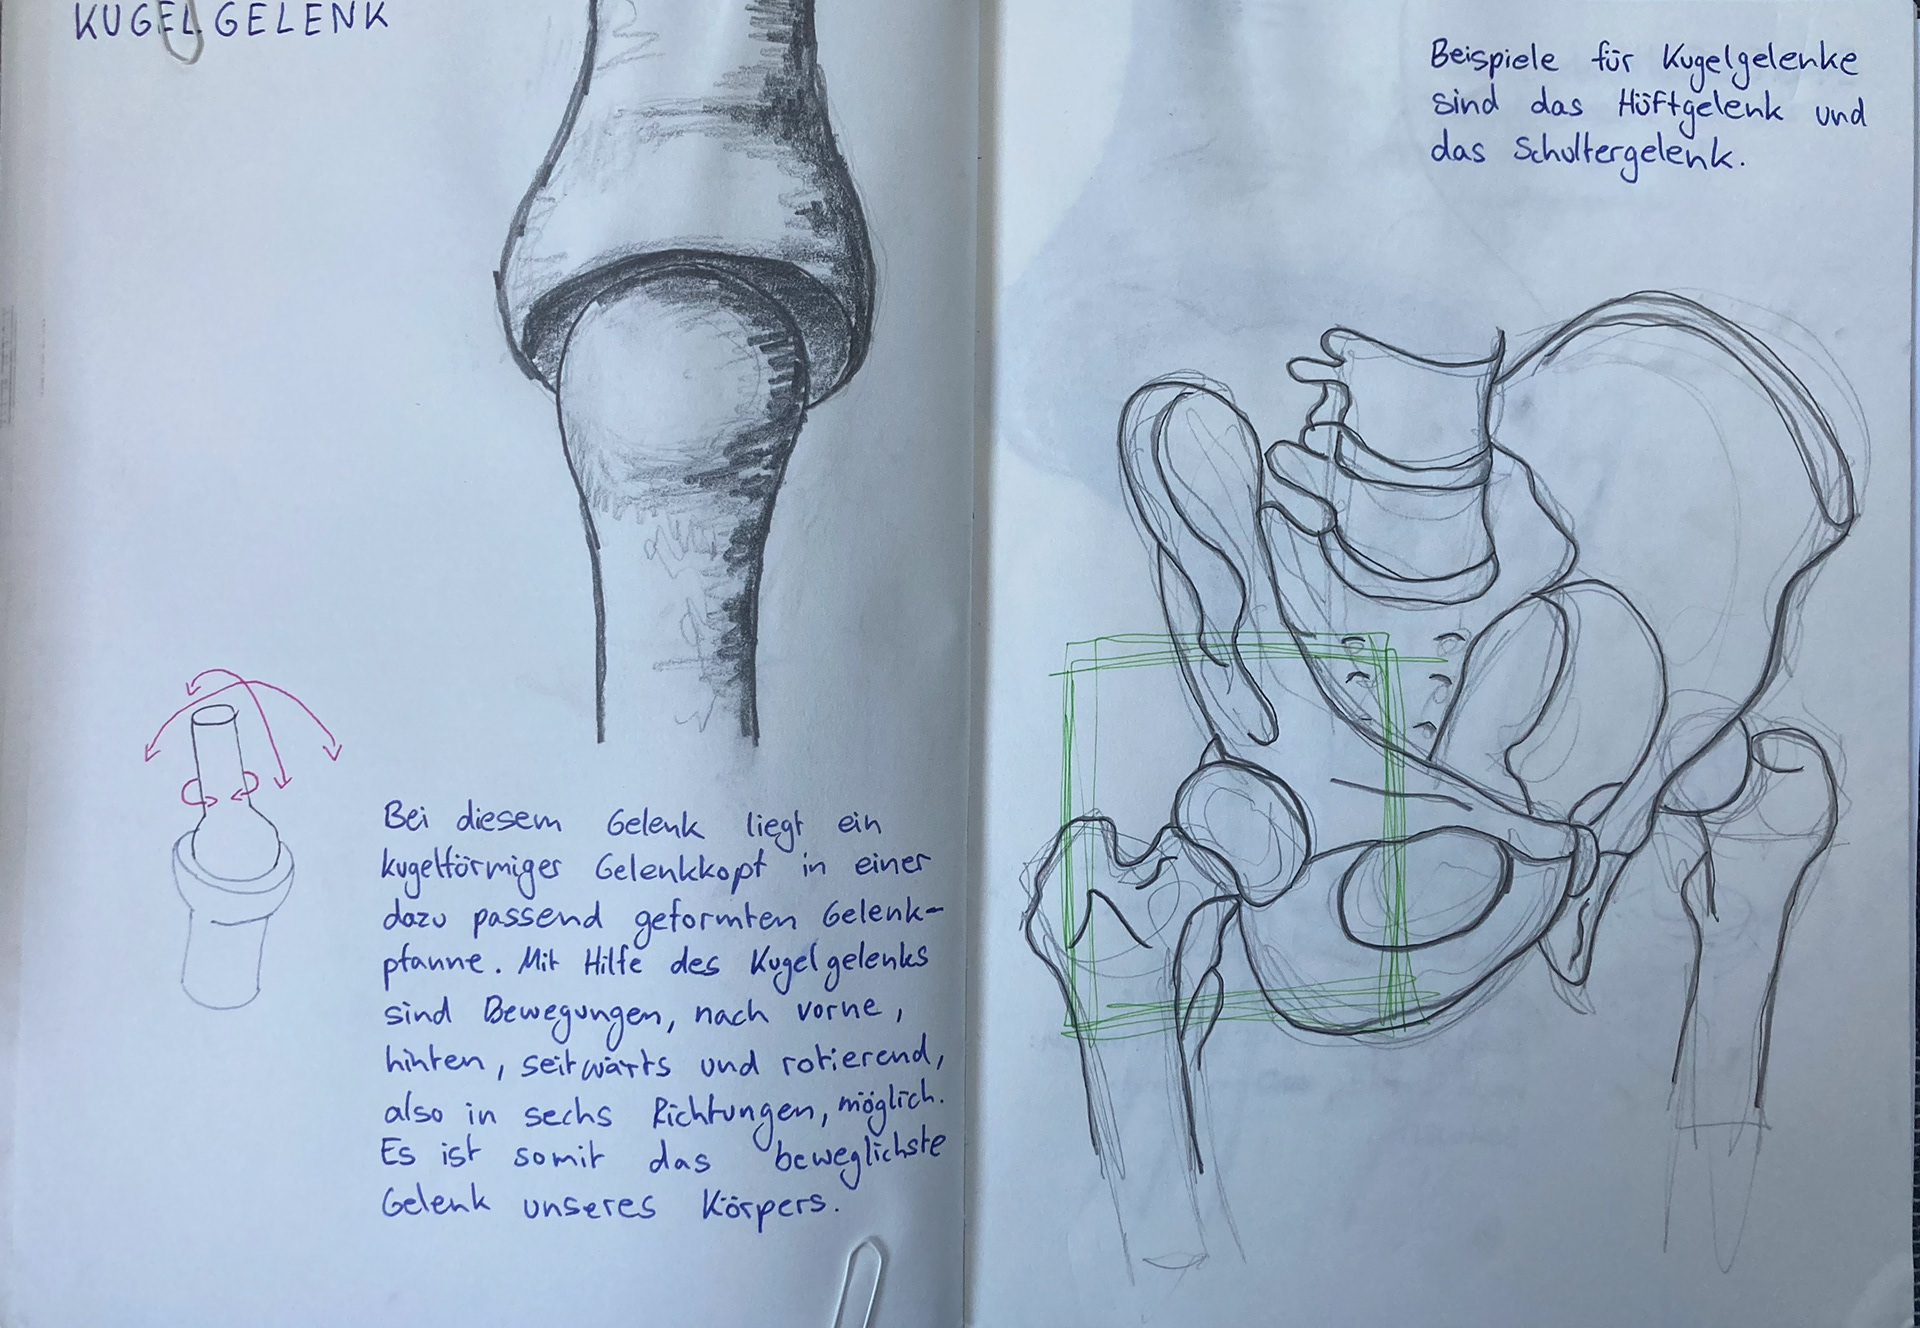 KUGELGELENK
Bei diesem Gelenk liegt ein
kugelförmiger Gelenkkopf in einer
dazu passend geformten Gelenk-
pfanne. Mit Hilfe des Kugelgelenks
sind Bewegungen, nach vorne,
hinten, seitwärts und rotierend,
also in sechs Richtungen, möglich.
Es ist somit das beweglichste
Gelenk unseres Körpers.
Beispiele für Kugelgelenke
sind das Hüftgelenk und
das Schultergelenk.